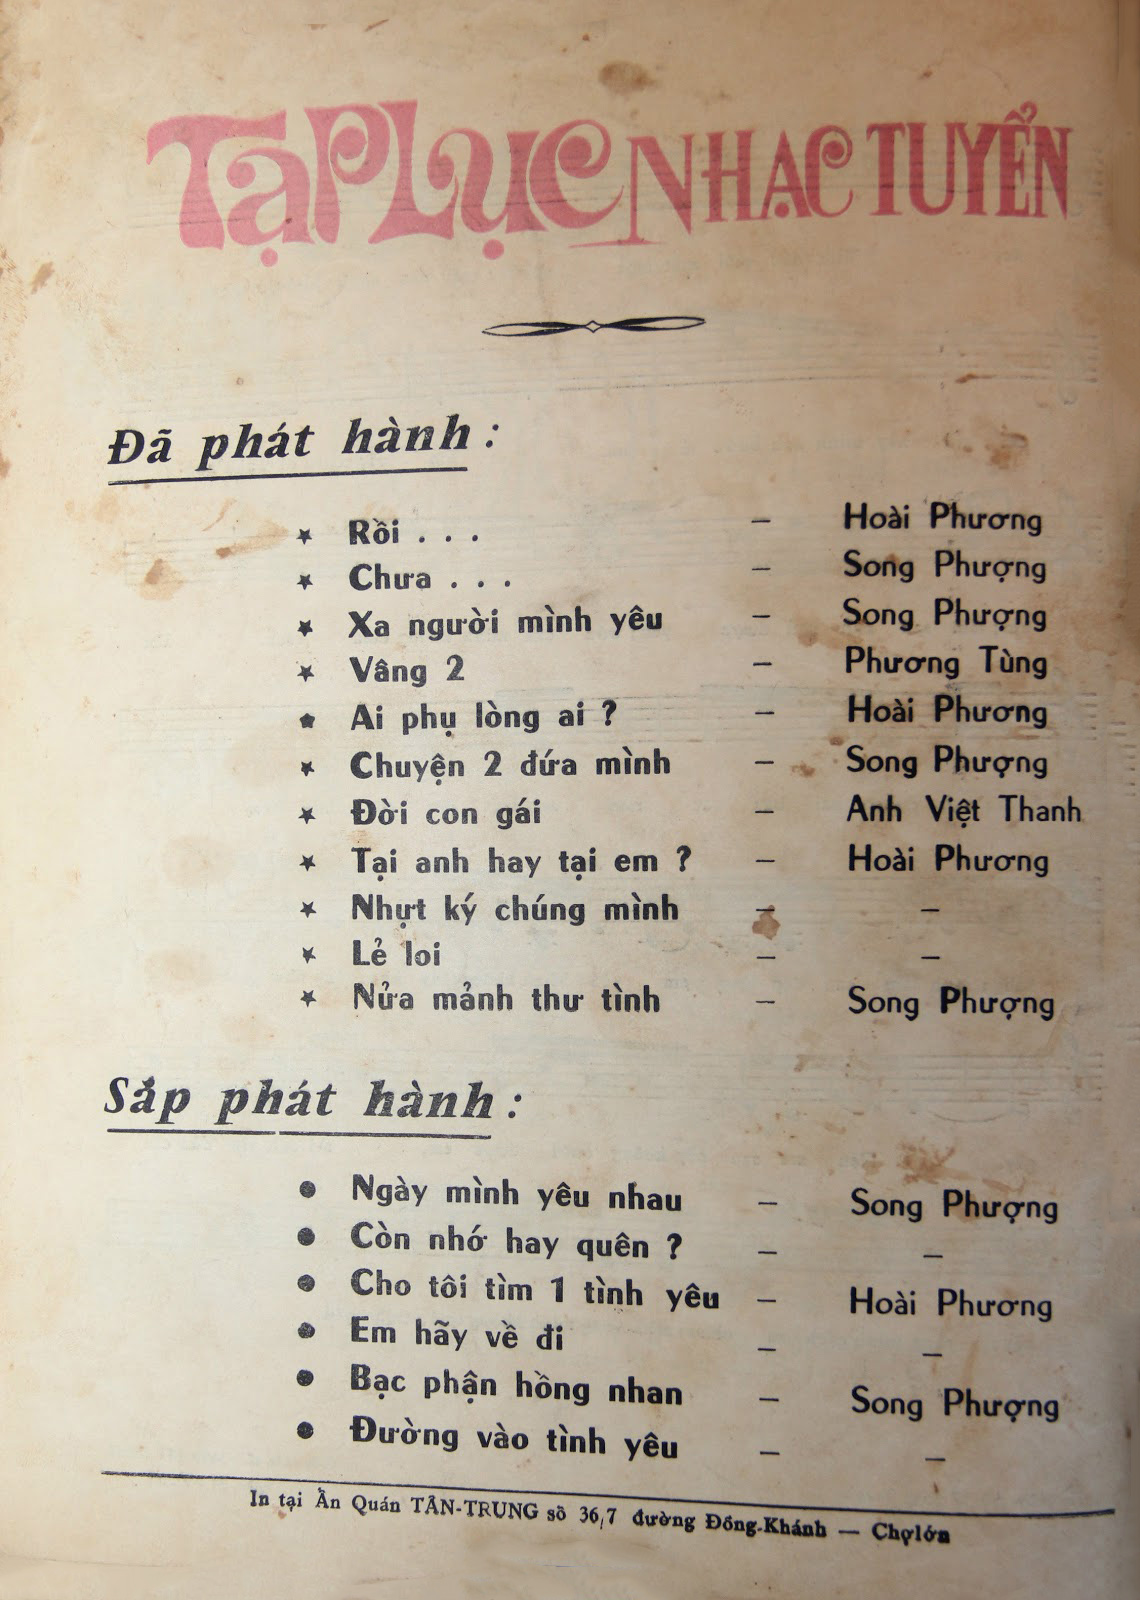 TẠP LỤC NHẠC TUYỂN
Đã phát hành :
★ Rồi . . . – Hoài Phương
★ Chưa . . . – Song Phượng
★ Xa người mình yêu – Song Phượng
★ Vâng 2 – Phương Tùng
★ Ai phụ lòng ai ? – Hoài Phương
★ Chuyện 2 đứa mình – Song Phượng
★ Đời con gái – Anh Việt Thanh
★ Tại anh hay tại em ? – Hoài Phương
★ Nhựt ký chúng mình – –
★ Lẻ loi – –
★ Nửa mảnh thư tình – Song Phượng
Sắp phát hành :
● Ngày mình yêu nhau – Song Phượng
● Còn nhớ hay quên ? – –
● Cho tôi tìm 1 tình yêu – Hoài Phương
● Em hãy về đi – –
● Bạc phận hồng nhan – Song Phượng
● Đường vào tình yêu – –
In tại Ấn Quán TÂN-TRUNG số 36/7 đường Đồng-Khánh — Chợlớn